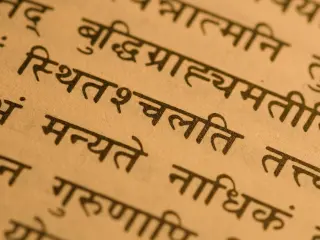 न्नात्मनि तु
तद् बुद्धिग्राह्यमती
स्थितश्चलति तत्त्व
भं मन्यते नाधिकं
न गुरुणापि